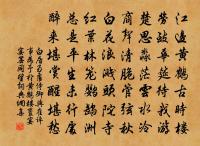 江邊黃鶴古時樓
勞置華筵待我遊
楚思淼茫雲水冷
商聲清脆管弦秋
白花浪濺頭陀寺
紅葉林籠鸚鵡洲
總是平生未行處
醉來堪賞醒堪愁
白居易盧侍御與崔評
事為予於黃鶴樓置宴
宴罷同望詩詞典網集